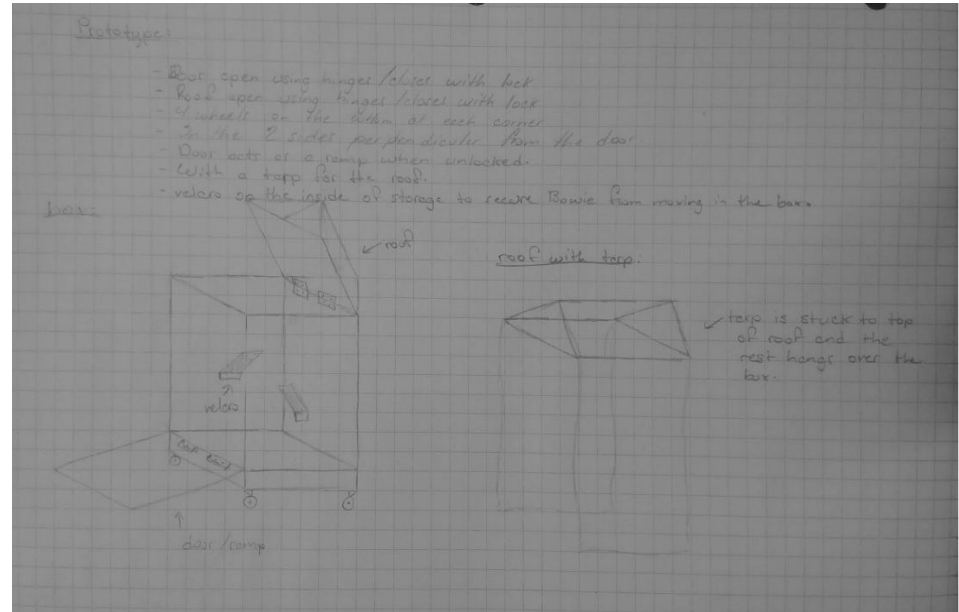 Prototype:
- Door open using hinges / closes with lock
- Roof open using hinges / closes with lock
- 4 wheels on the at each corner
- In the 2 sides perpendicular from the door
- Door acts as a ramp when unlocked.
- With a tarp for the roof.
- velcro on the inside of storage to secure Bowie from moving in the box.
box:
roof
roof with tarp:
tarp is stuck to top
of roof and the
rest hangs over the
box.
velcro
door/ramp